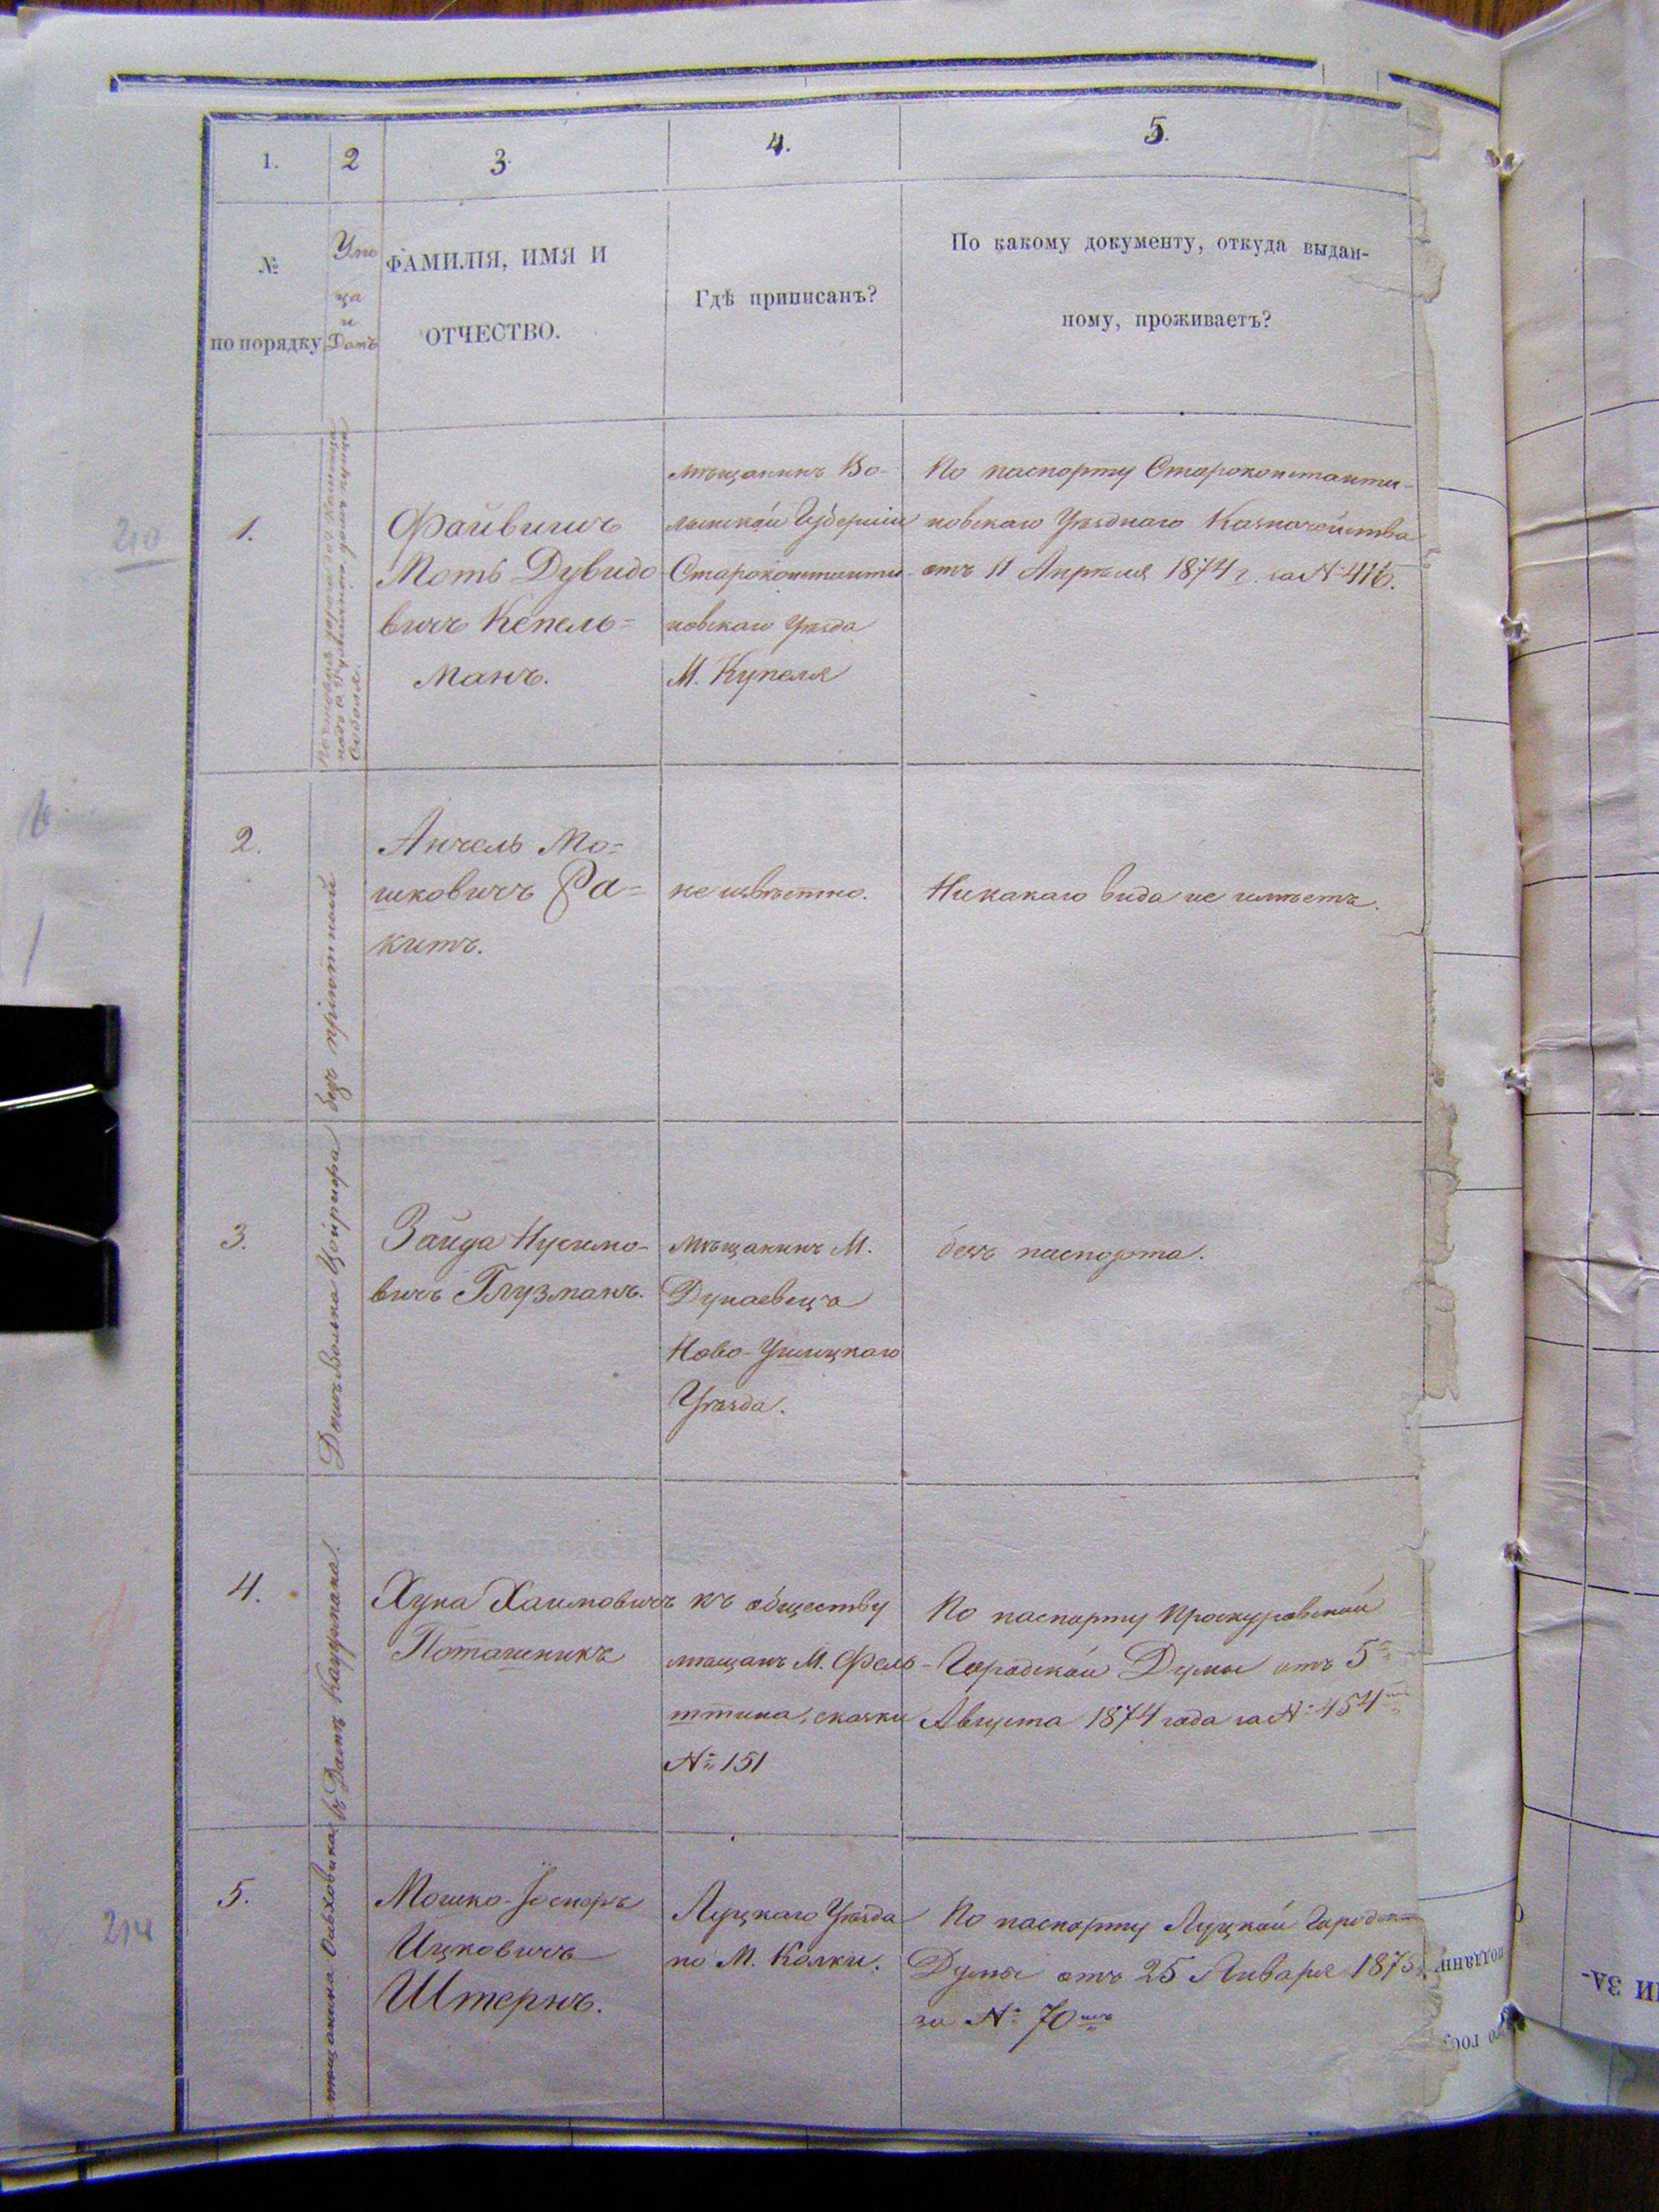 1.
2
3.
4.
5.
№
по порядку
Ули
ца
и
Домъ
ФАМИЛІЯ, ИМЯ И
ОТЧЕСТВО.
Гдѣ приписанъ?
По какому документу, откуда выдан-
ному, проживаетъ?
210
1.
Файвишъ
Моть Дувидо
вичъ Кепель=
манъ.
мѣщанинъ Во-
лынской Губерніи
Староконстанти-
новскаго Уѣзда
М. Купеля
По паспорту Староконстанти-
новскаго Уѣзднаго Казначейства
отъ 11 Апрѣля 1874 г. за №416.
2.
безъ пріютный
Анчель Мо=
шковичъ Ра=
китъ.
не извѣстно.
Никакаго вида не имѣетъ.
3.
Домъ Волька
Зайда Нусимо-
вичъ Глузманъ.
мѣщанинъ М.
Дунаевецъ
Ново-Ушицкаго
Уѣзда.
безъ паспорта.
4.
въ Домѣ Кауфмана.
Хуна Хаимовичъ
Поташникъ
къ обществу
мѣщанъ М. Фель-
штина, сказки
№ 151
По паспорту Проскуровской
Городской Думы отъ 5го
Августа 1874 года за № 454мъ
214
5.
мѣщанина Ольховика
Мошко-Іосноръ
Ицковичъ
Штернъ.
Луцкаго Уѣзда
по М. Колки.
По паспорту Луцкой Городск
Думы отъ 25 Января 1875
за № 70мъ